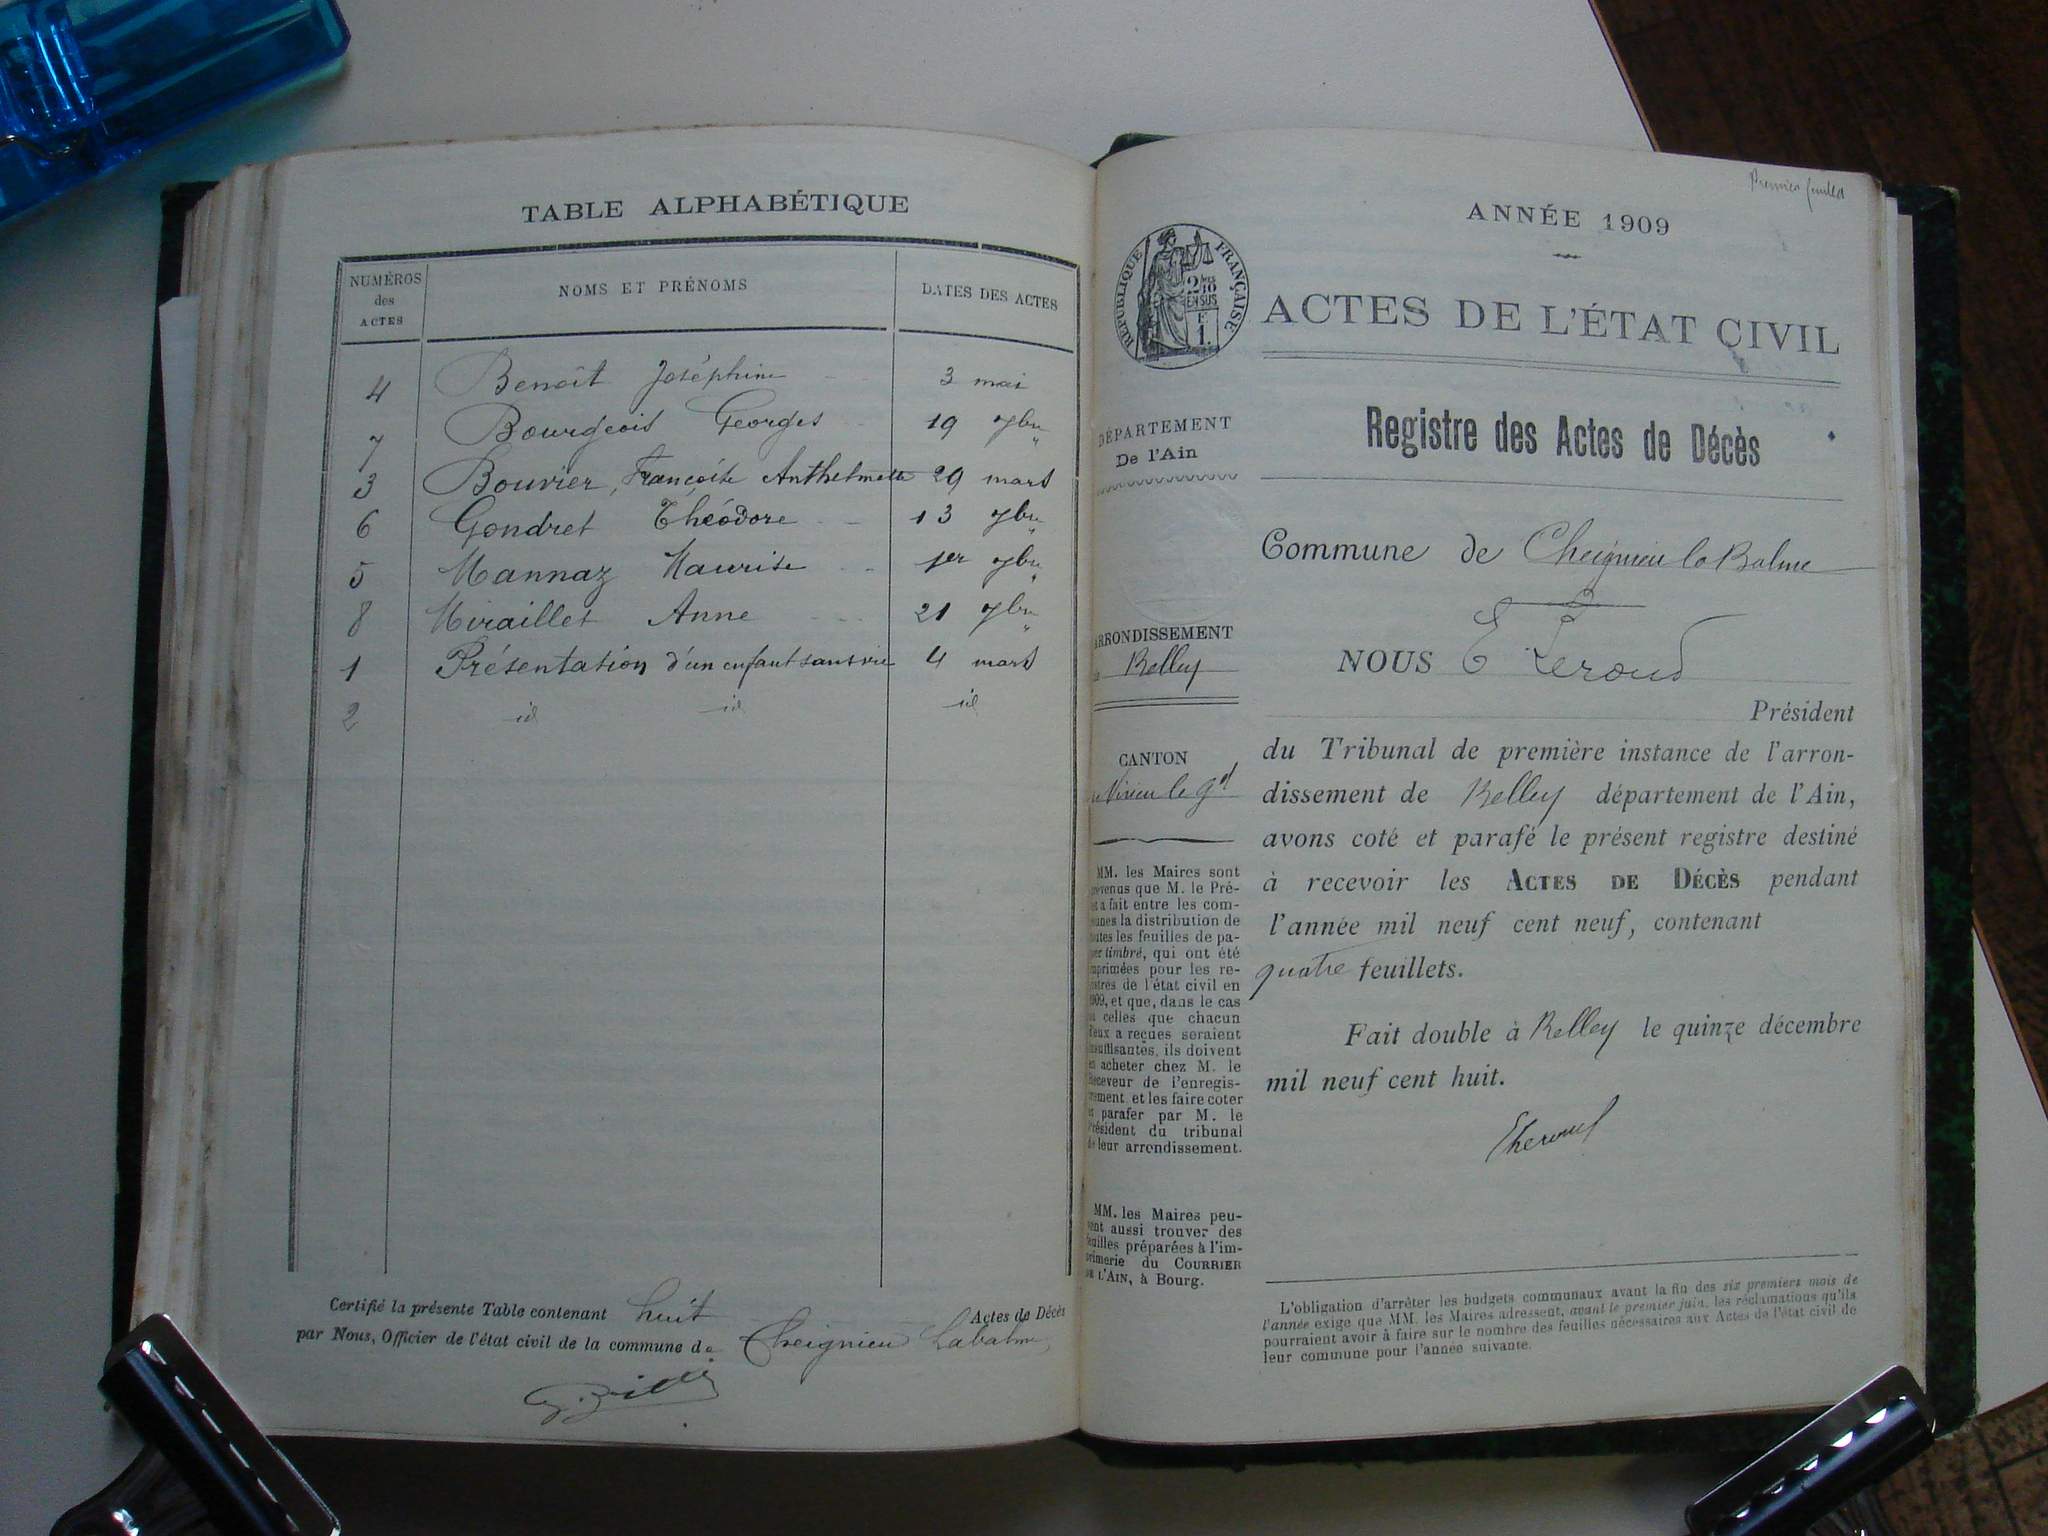 TABLE ALPHABÉTIQUE
NUMÉROS des ACTES NOMS ET PRÉNOMS DATES DES ACTES
4 Benoît Joséphine 3 mai
7 Bourgeois Georges 19 7bre
3 Bouvier, Françoise Anthelmette 29 mars
6 Gondret Théodore 13 7bre
5 Mannaz Maurise 1er 7bre
8 Miraillet Anne 21 7bre
1 Présentation d'un enfant sans vie 4 mars
2 id id id
Certifié la présente Table contenant huit Actes de Décès
par Nous, Officier de l'état civil de la commune de Cheignieu Labalme
Premier feuillet
ANNÉE 1909
RÉPUBLIQUE FRANÇAISE
2/10 EN SUS
1.
ACTES DE L'ÉTAT CIVIL
DÉPARTEMENT
De l'Ain
Registre des Actes de Décès
Commune de Cheignieu la Balme
ARRONDISSEMENT
Belley
NOUS E Leroud
Président
CANTON
Virieu le Gd
du Tribunal de première instance de l'arron-
dissement de Belley département de l'Ain,
avons coté et parafé le présent registre destiné
à recevoir les ACTES DE DÉCÈS pendant
l'année mil neuf cent neuf, contenant
quatre feuillets.
Fait double à Belley le quinze décembre
mil neuf cent huit.
MM. les Maires sont
prévenus que M. le Pré-
fet a fait entre les com-
munes la distribution de
toutes les feuilles de pa-
pier timbré, qui ont été
imprimées pour les re-
gistres de l'état civil en
1909, et que, dans le cas
où celles que chacun
d'eux a reçues seraient
insuffisantes, ils doivent
en acheter chez M. le
Receveur de l'enregis-
trement et les faire coter
et parafer par M. le
Président du tribunal
de leur arrondissement.
MM. les Maires peu-
vent aussi trouver des
feuilles préparées à l'im-
primerie du COURRIER
DE L'AIN, à Bourg.
L'obligation d'arrêter les budgets communaux avant la fin des six premiers mois de
l'année exige que MM. les Maires adressent, avant le premier juin, les réclamations qu'ils
pourraient avoir à faire sur le nombre des feuilles nécessaires aux Actes de l'état civil de
leur commune pour l'année suivante.